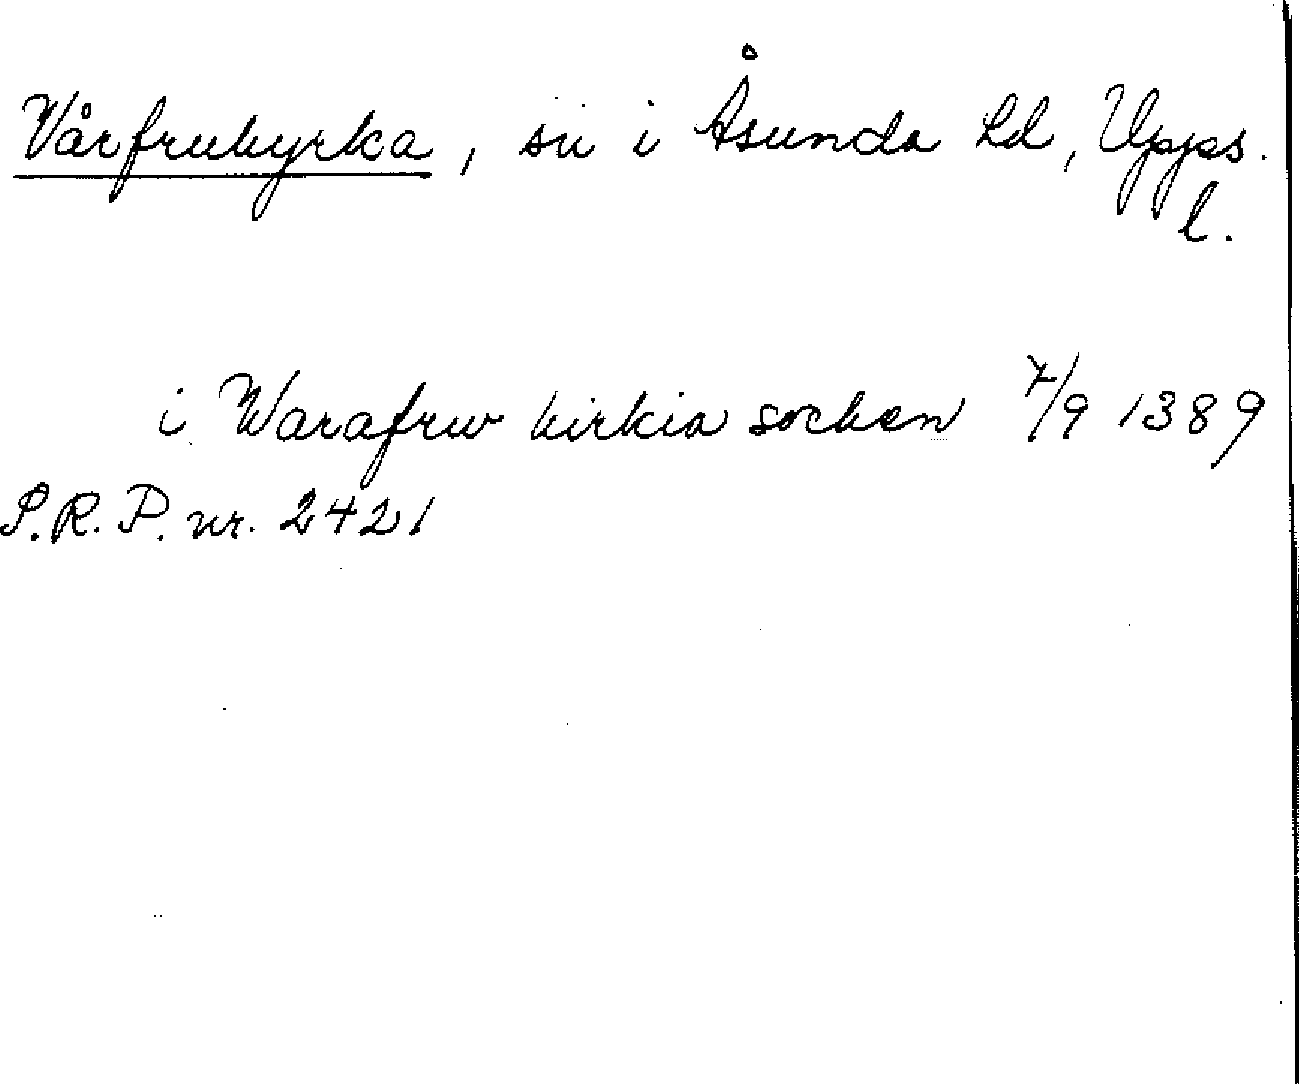 Vårfrukyrka, sn i Åsunda hd, Upps.
l.
i Warafrw kirkia sochen 7/9 1389
S.R.P. nr. 2421